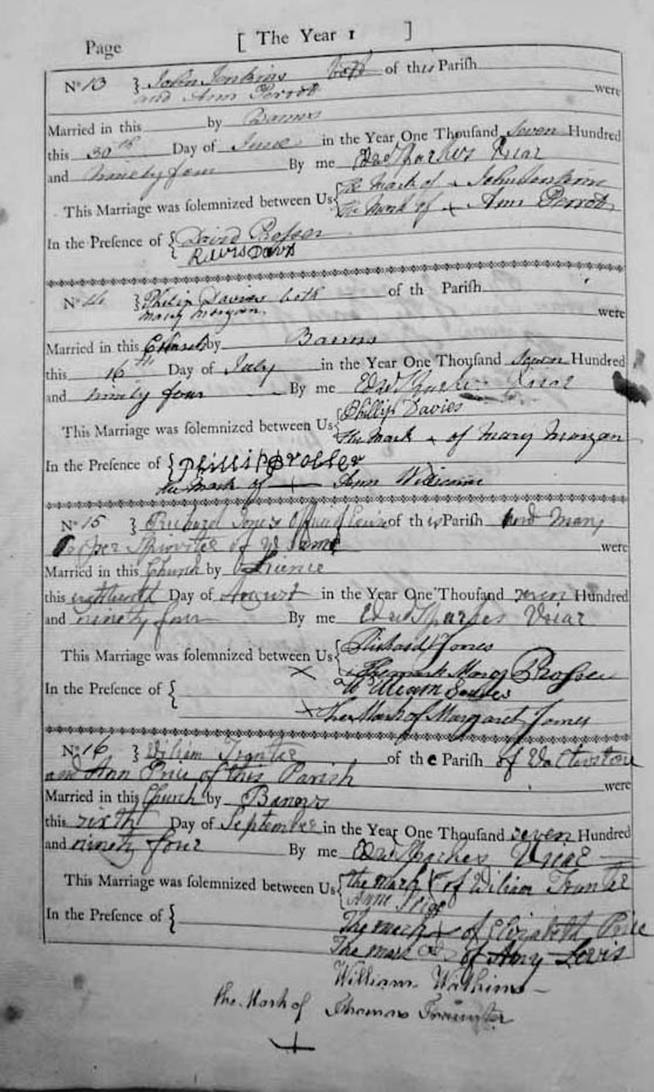 Page [ The Year 1 ]
No 13 } John Jenkins both of this Parish
and Ann Perrot were
Married in this by Banns
this 30th Day of June in the Year One Thousand Seven Hundred
and ninety four By me Edwd Sparkes Vicar
This Marriage was solemnized between Us { The mark of x John Jenkins
The Mark of x Ann Perrot
In the Presence of { David Prosser
No 14 } Philip Davies both of th Parish
mary morgan. were
Married in this Church by Banns
this 16th Day of July in the Year One Thousand Seven Hundred
and ninety four By me Edwd Sparkes Vicar
This Marriage was solemnized between Us { Phillip Davies
the Mark x of mary morgan
In the Presence of { Phillip Prosser
the mark of + Ann William
No 15 } Richard Jones of this Parish and Mary
Proper Spinster of same were
Married in this Church by Licence
this eighteenth Day of August in the Year One Thousand seven Hundred
and ninety four By me Edwd Sparkes Vicar
This Marriage was solemnized between Us { Richard Jones
x The mark Mary Prosser
In the Presence of { William
x the Mark of Margaret Jones
No 16 } William Tranter of the Parish of Walterstone
and Ann Price of this Parish were
Married in this Church by Banns
this sixth Day of September in the Year One Thousand seven Hundred
and ninety four By me Edwd Sparkes Vicar
This Marriage was solemnized between Us { the mark x of William Tranter
Anne Price
In the Presence of { The mark x of Elizabeth Price
The mark of Amy Lewis
William Watkins
the Mark of Thomas Traunter
+